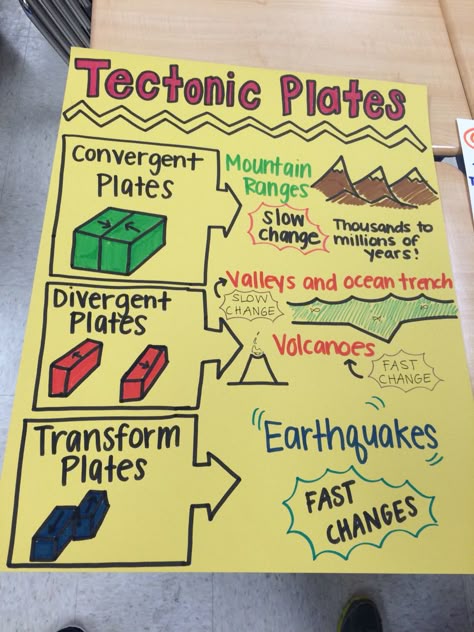 Tectonic Plates
Convergent
Plates
Mountain
Ranges
Slow
change
Thousands to
millions of
years!
Divergent
Plates
Valleys and ocean trench
SLOW
CHANGE
Volcanoes
FAST
CHANGE
Transform
Plates
"Earthquakes"
FAST
CHANGES